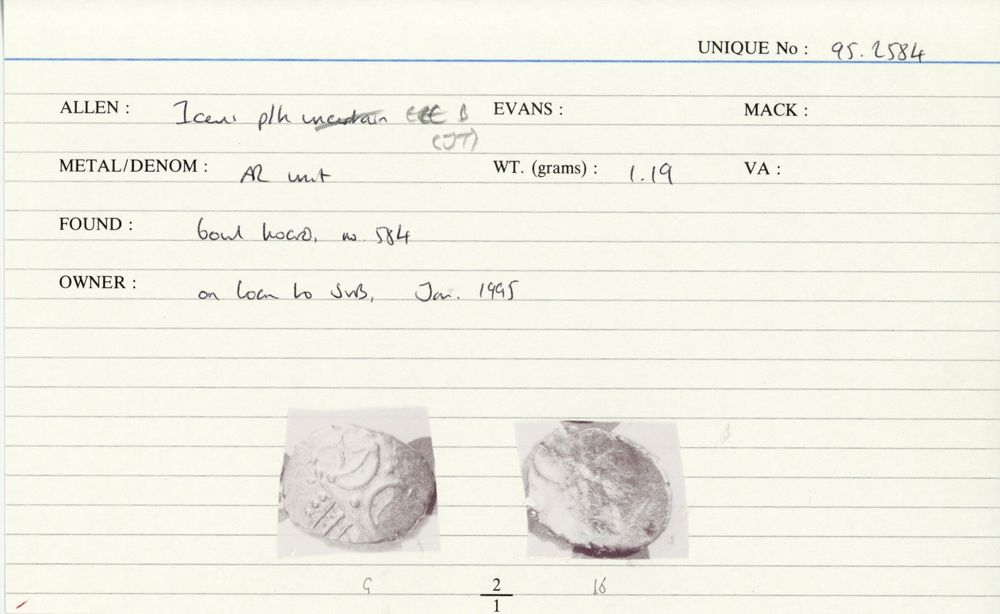 UNIQUE No : 95.2584
ALLEN : Iceni p/h uncertain ECE B EVANS : MACK :
(JT)
METAL/DENOM : AR unit WT. (grams) : 1.19 VA :
FOUND : bowl hoard, no. 584
OWNER : on loan to SVB, Jan. 1995
2
1
16